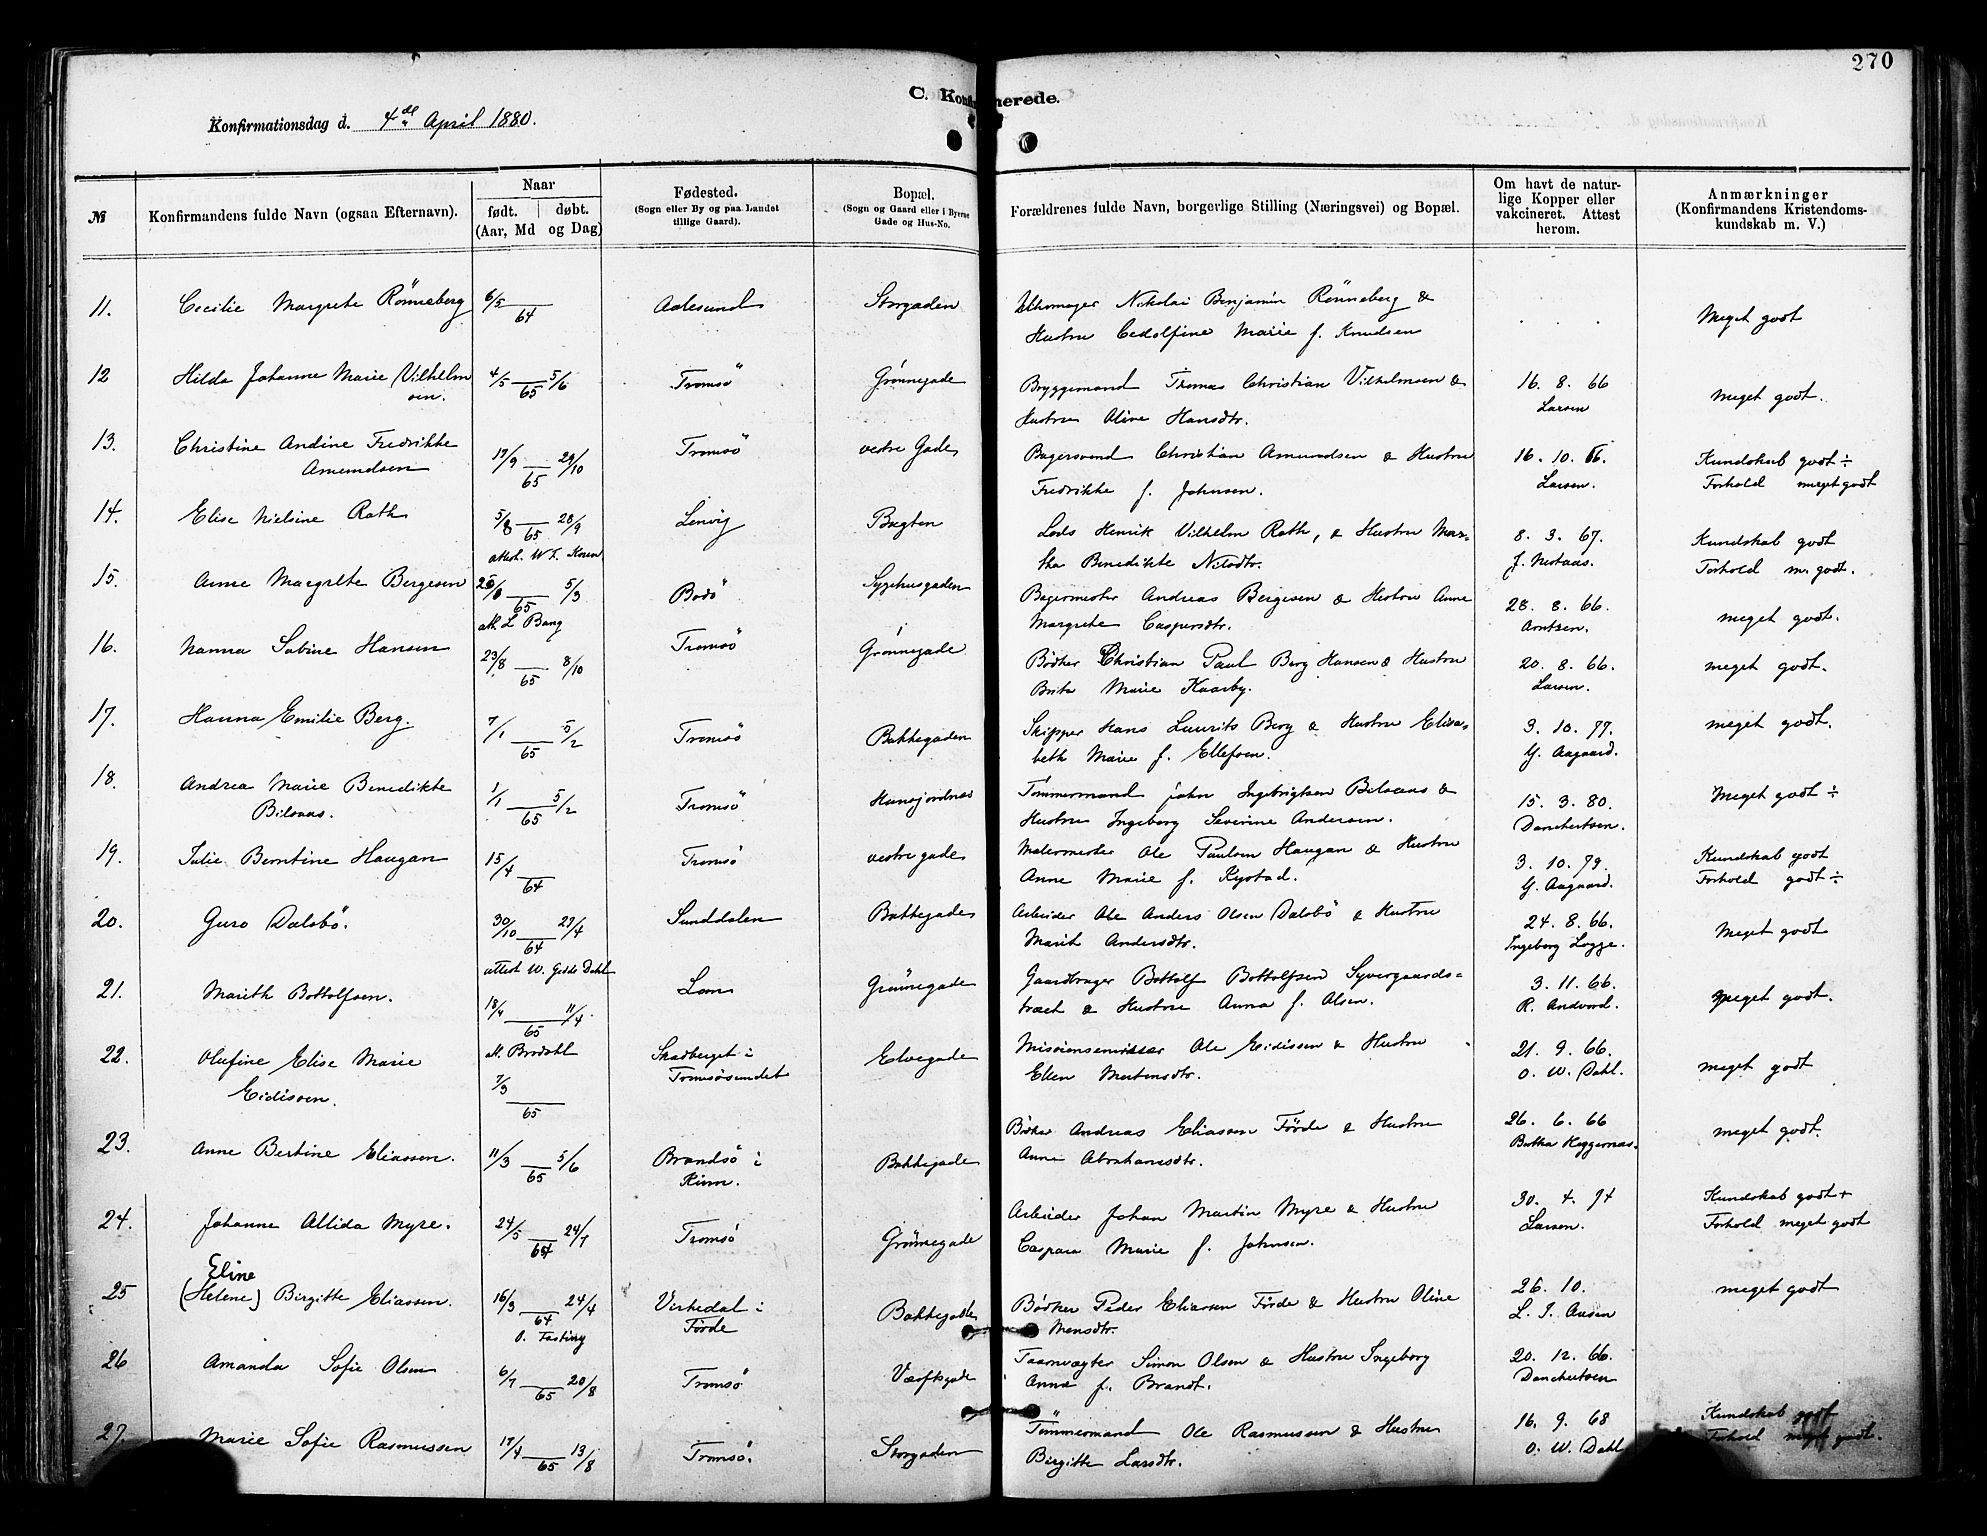 270
C. Konfirmerede.
Konfirmationsdag d. 4de April 1880.
№
Konfirmandens fulde Navn (ogsaa Efternavn).
Naar
født. døbt.
(Aar, Md og Dag)
Fødested.
(Sogn eller By og paa Landet
tillige Gaard).
Bopæl.
(Sogn og Gaard eller i Byerne
Gade og Hus-No.
Forældrenes fulde Navn, borgerlige Stilling (Næringsvei) og Bopæl.
Om havt de natur-
lige Kopper eller
vakcineret. Attest
herom.
Anmærkninger
(Konfirmandens Kristendoms-
kundskab m. V.)
11. Cecilie Margrete Rönneberg 6/5 64 Aalesund Storgaden Uhrmager Nikolai Benjamin Rönneberg & . . . Meget godt
Hustru Cedolfine Marie f. Knudsen
12 Hilda Johanne Marie Vilhelm 4/5 65 5/6 Tromsö Grønnegade Bryggemand Tomas Christian Vilhelmsen & 16. 8. 66 meget godt.
sen. Hustru Oline Hansdtr. Larsen
13. Christine Andine Fredrikke 19/9 65 29/10 Tromsö vestre Gade Bagersvend Christian Amundsen & Hustru 16. 10. 66. Kundskab godt ÷
Amundsen Fredrikke f. Johnsen. Larsen. Forhold meget godt
14. Elise Nielsine Rath 5/8 65 28/9 Lenvig Bugten Lods Henrik Vilhelm Rath, & Hustru Mar- 8. 3. 67. Kundskab godt
attest. W. F. Koren tha Benedikte Nilsdtr. J. Nestaas. Forhold m. godt.
15. Anne Margrete Bergesen 5/3 65 Bodö Sygehusgaden Bagermester Andreas Bergesen & Hustru Anne 28. 8. 66. meget godt.
att. L Bang Margrete Caspersdtr. Arntzen.
16. Nanna Sabine Hansen 23/8 65 8/10 Tromsö Grønnegade Bödker Christian Paul Berg Hansen & Hustru 20. 8. 66. meget godt.
Brita Marie Kaarby. Larsen.
17. Hanna Emilie Berg. 7/1 65 5/2 Tromsö Bakkegaden Skipper Hans Laurits Berg & Hustru Elisa- 3. 10. 77. meget godt.
beth Marie f. Ellefsen. G. Aagaard.
18. Andrea Marie Benedikte 1/1 65 5/2 Tromsö Hansjordnes Tømmermand John Ingebrigtsen Bilsaas & 15. 3. 80. Meget godt ÷
Bilsaas. Hustru Ingeborg Severine Andersen. Danckertsen.
19. Julie Berntine Haugan 15/4 64 Tromsö vestre gade Malermester Ole Paulsen Haugan & Hustru 3. 10. 79. Kundskab godt
Anne Marie f. Kystad. G. Aagaard. Forhold godt ÷
20. Guro Dalsbö. 30/10 64 23/4 Sunddalen Bakkegade Arbeider Ole Anders Olsen Dalsbö & Hustru 24. 8. 66. Meget godt
attest W. Gedde Dahl Marit Andersdtr. Ingeborg Logge.
21. Marith Bottolfsen. 18/4 65 11/4 Lom Grönnegade Gaardbruger Bottolf Bottolfsen Syvergaards- 3. 11. 66. meget godt.
træet & Hustru Anna f. Olsen. R. Andvord.
22. Olufine Elise Marie 7/3 65 Skadberget i Elvegade Missionsemissær Ole Eidissen & Hustru 21. 9. 66. meget godt
Eidissen. Tromsösundet Ellen Mortensdtr. O. W. Dahl.
23. Anne Bertine Eliassen. 11/3 65 5/6 Brandsö i Bakkegade Bödker Andreas Eliassen Förde & Hustru 26. 6. 66 meget godt.
Kinn. Anne Abrahamsdtr.
24. Johanne Allida Myre. 24/5 64 24/7 Tromsö Grönnegade Arbeider Johan Martin Myre & Hustru 30. 4. 74 Kundskab godt +
Caspara Marie f. Johnsen. Larsen. Forhold meget godt
Eline
25 (Helene) Birgitte Eliassen. 16/3 64 24/4 Virkedal i Bakkegaden Bödker Peder Eliassen Förde & Hustru Oline 26. 10. meget godt
O. Fasting Förde Monsdtr.
26 Amanda Sofie Olsen 6/7 65 20/8 Tromsö Værftsgade Taarnvægter Simon Olsen & Hustru Ingeborg 20. 12. 66.
Anna f. Brandt. Danckertsen
27. Marie Sofie Rasmussen 17/4 65 13/8 Tromsö. Storgaden Tömmermand Ole Rasmussen & Hustru 16. 9. 68 Kundskab godt
Birgitte Larsdtr. O. W. Dahl Forhold meget godt.